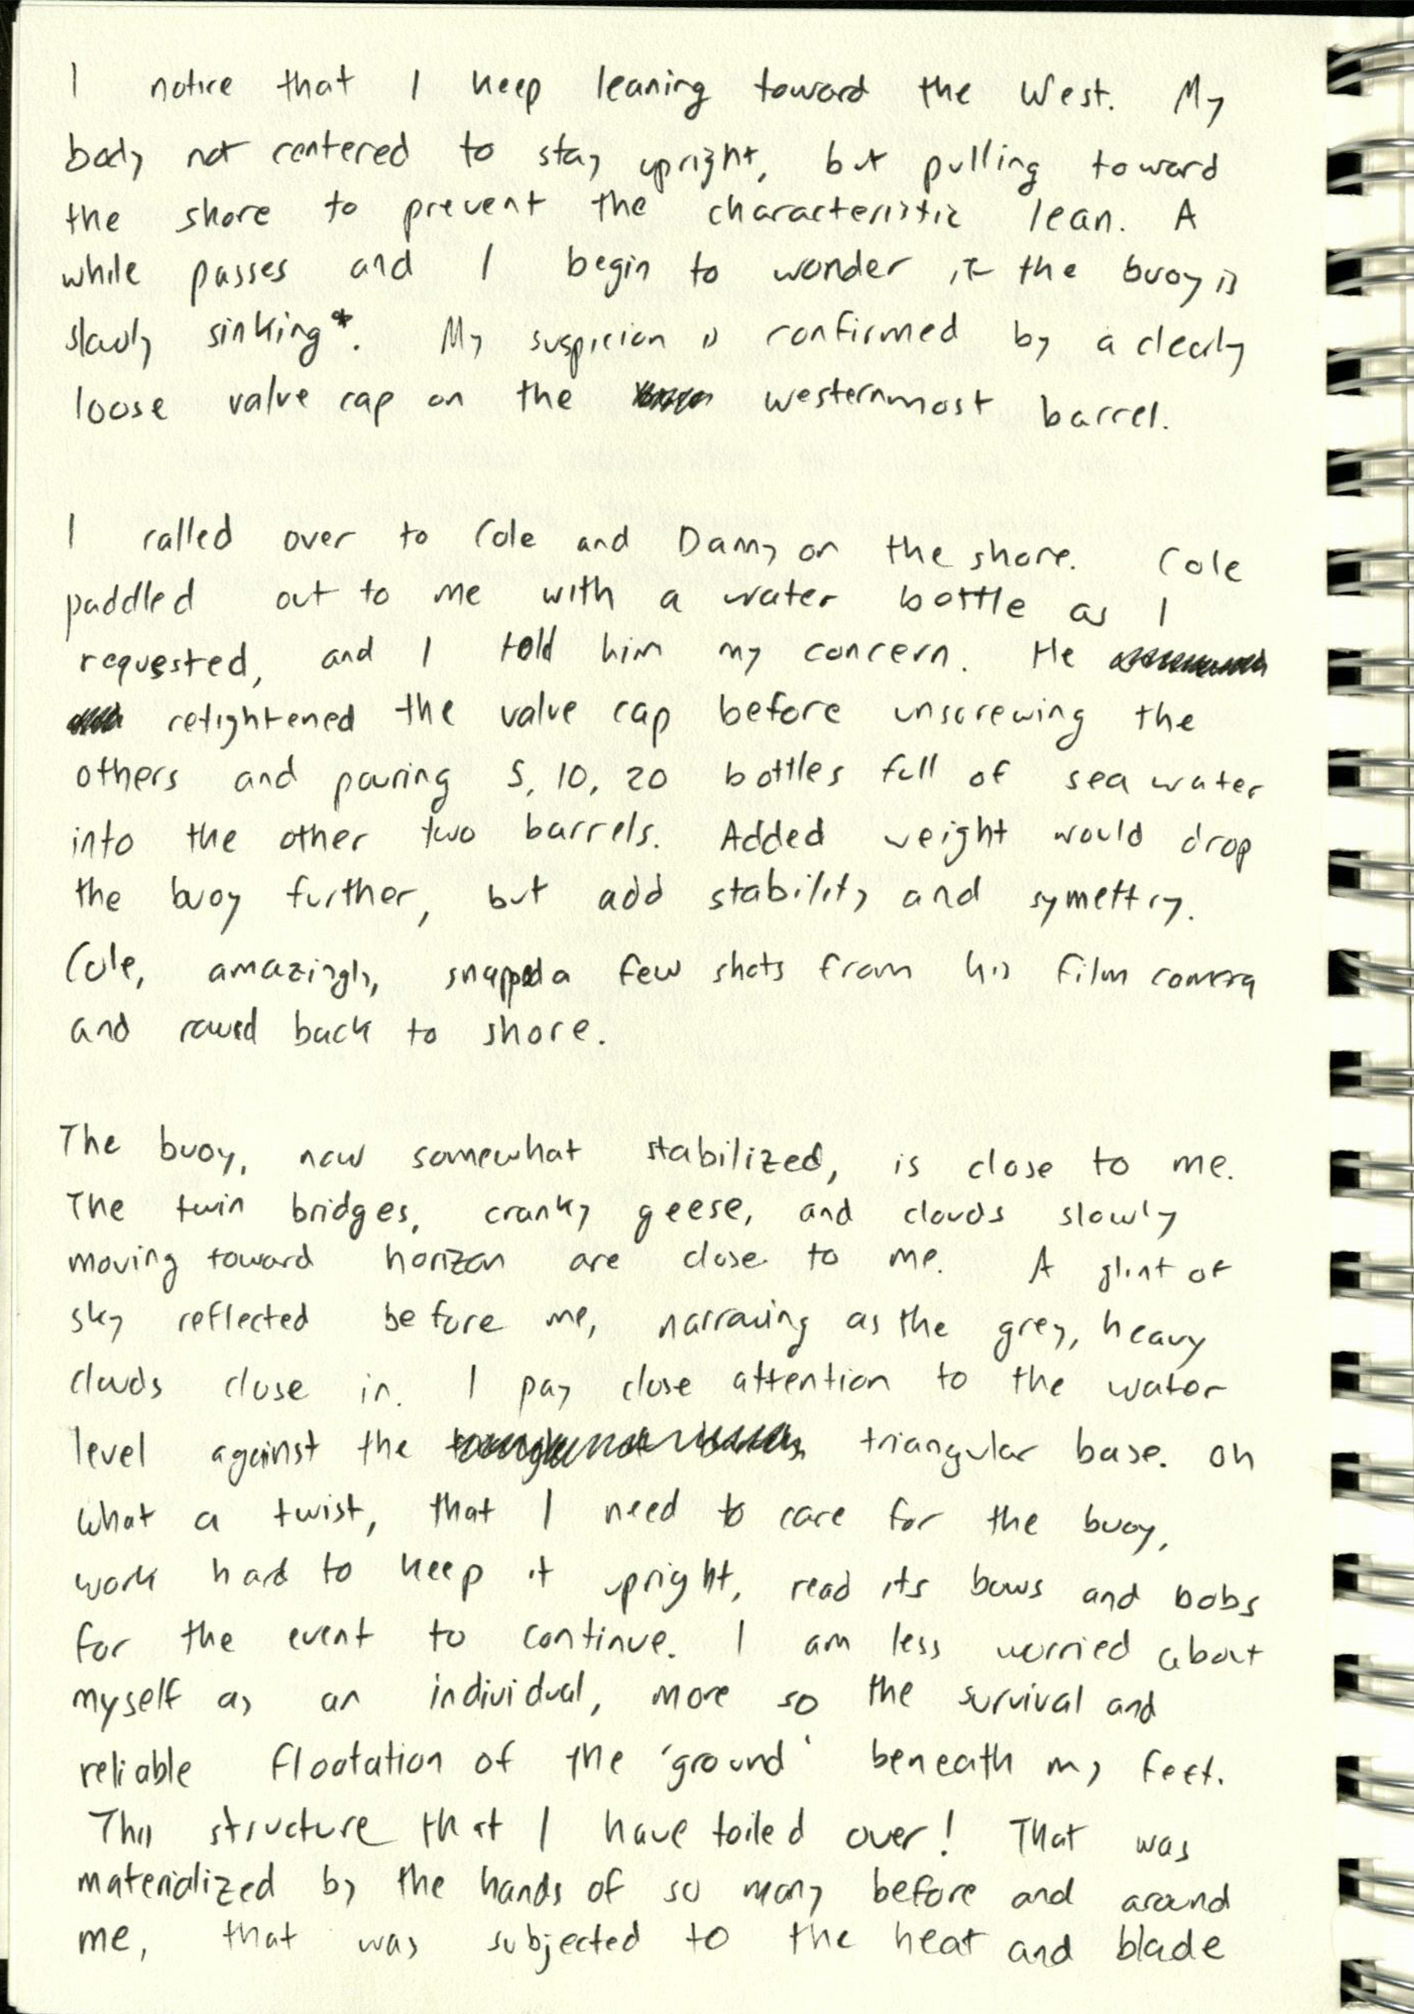 I notice that I keep leaning toward the West. My
body not centered to stay upright, but pulling toward
the shore to prevent the characteristic lean. A
while passes and I begin to wonder if the buoy is
slowly sinking*. My suspicion is confirmed by a clearly
loose valve cap on the westernmost barrel.
I called over to Cole and Danny on the shore. Cole
paddled out to me with a water bottle as I
requested, and I told him my concern. He
retightened the valve cap before unscrewing the
others and pouring 5, 10, 20 bottles full of sea water
into the other two barrels. Added weight would drop
the buoy further, but add stability and symettry.
Cole, amazingly, snapped a few shots from his film camera
and rowed back to shore.
The buoy, now somewhat stabilized, is close to me.
The twin bridges, cranky geese, and clouds slowly
moving toward horizon are close to me. A glint of
sky reflected before me, narrowing as the grey, heavy
clouds close in. I pay close attention to the water
level against the triangular base. Oh
what a twist, that I need to care for the buoy,
work hard to keep it upright, read its bows and bobs
for the event to continue. I am less worried about
myself as an individual, more so the survival and
reliable flootation of the 'ground' beneath my feet.
This structure that I have toiled over! That was
materialized by the hands of so many before and around
me, that was subjected to the heat and blade